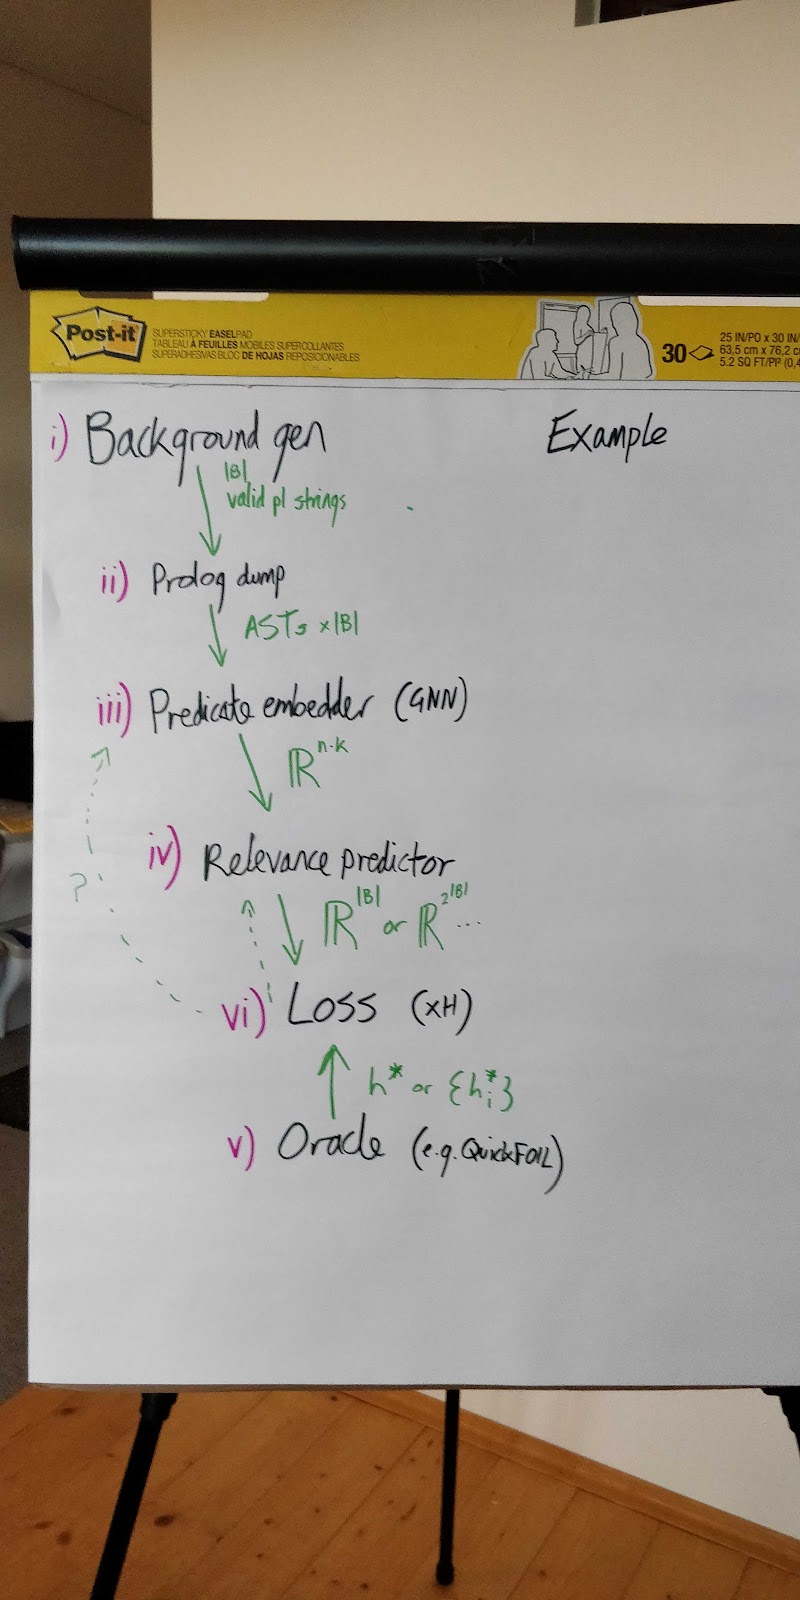 Post-it
SUPERSTICKY EASELPAD
TABLEAU À FEUILLES MOBILES SUPERCOLLANTES
SUPERADHESIVAS BLOC DE HOJAS REPOSICIONABLES
30
25 IN/PO x 30 IN/
63,5 cm x 76,2 c
5.2 SQ FT/PI² (0,4
i) Background gen
Example
|B|
valid pl strings
ii) Prolog dump
ASTs x|B|
iii) Predicate embedder (GNN)
ℝ^n·k
iv) Relevance predictor
?
ℝ^|B| or ℝ^2^|B| ...
vi) Loss (xH)
h* or {h*i}
v) Oracle (e.g. QuickFOIL)